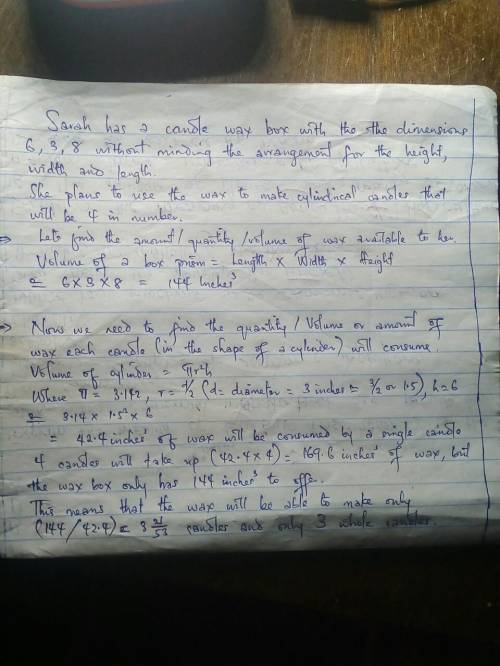 Sarah has a candle wax box with the the dimensions
6, 3, 8 without minding the arrangement for the height,
width and length.
She plans to use the wax to make cylindrical candles that
will be 4 in number.
⇒ Lets find the amount/quantity/volume of wax available to her.
Volume of a box prism = Length × Width × Height
≃ 6 × 3 × 8 = 144 Inches³
⇒ Now we need to find the quantity/Volume or amount of
wax each candle (in the shape of a cylinder) will consume.
Volume of cylinder = πr²h
Where π = 3.142, r = d/2 (d = diameter = 3 inches ≃ 3/2 or 1.5), h = 6
≃ 3.14 × 1.5² × 6
= 42.4 inches³ of wax will be consumed by a single candle
4 candles will take up (42.4 × 4) = 169.6 inches³ of wax, but
the wax box only has 144 inches³ to offer.
This means that the wax will be able to make only
(144/42.4) ≃ 3 21/53 candles and only 3 whole candles.